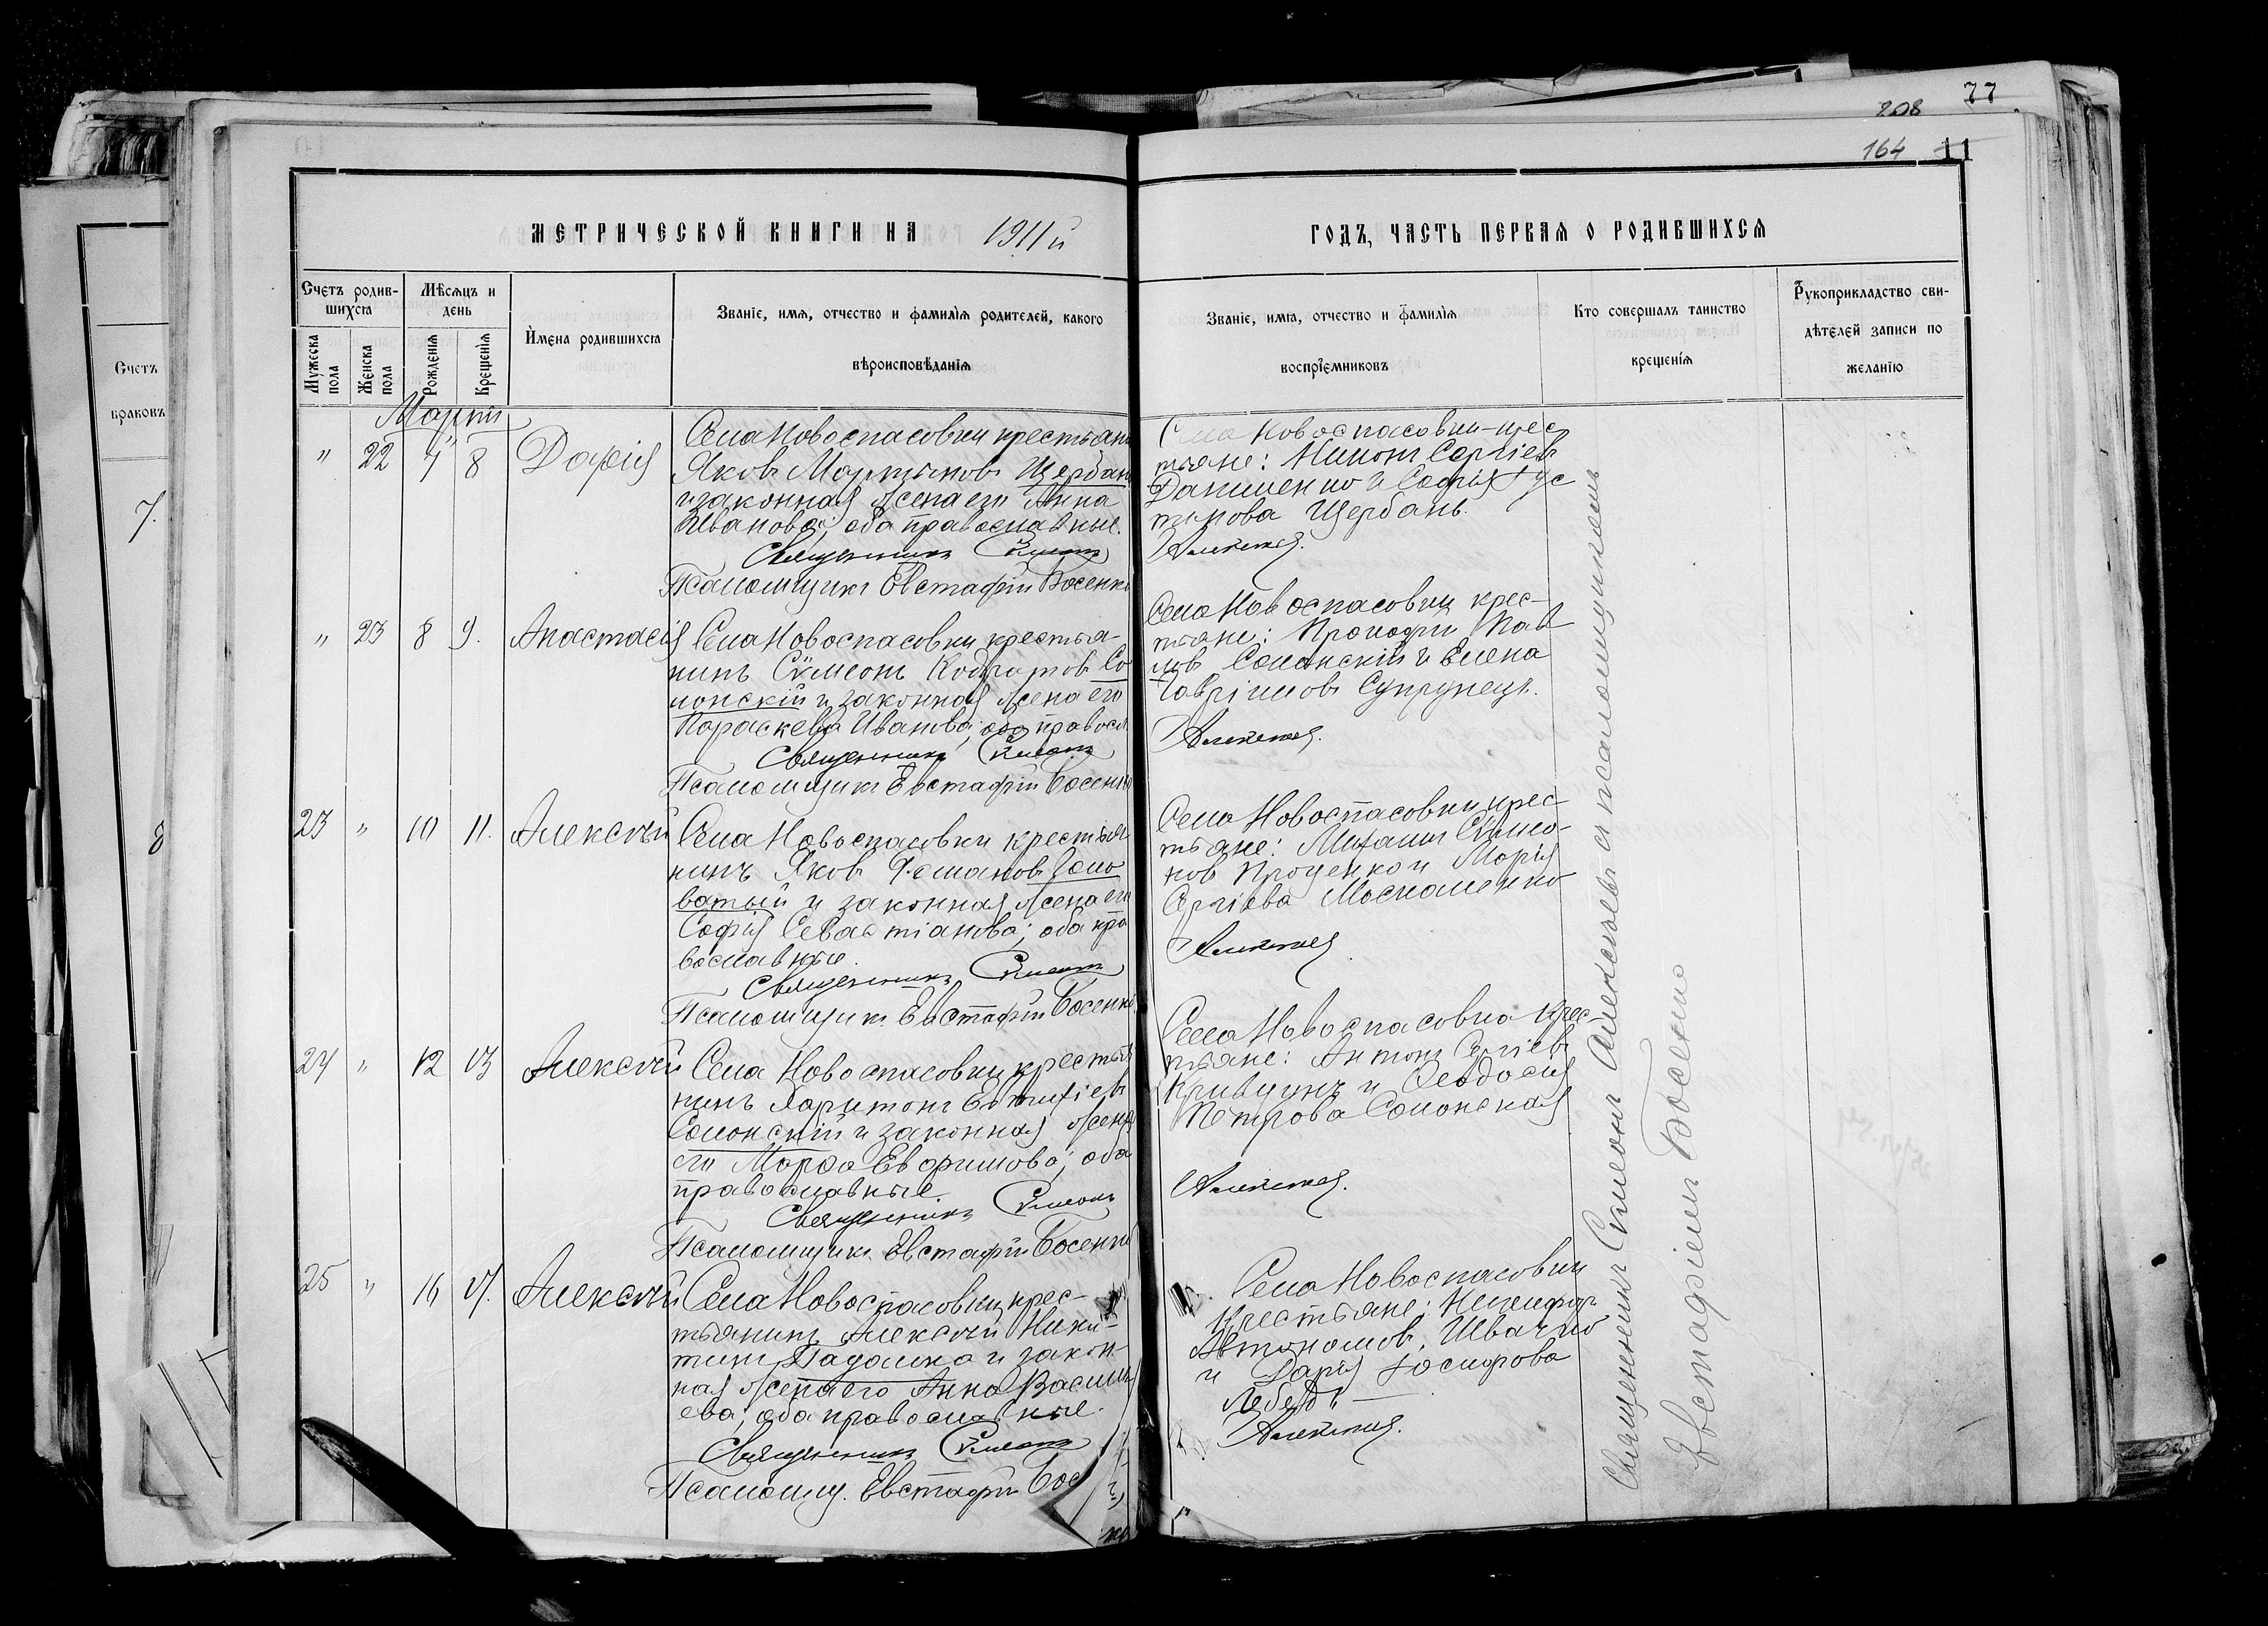 77
208
164 11
МЕТРИЧЕСКОЙ КНИГИ НА 1911й
ГОДЪ, ЧАСТЬ ПЕРВАЯ О РОДИВШИХСЯ
Счетъ родив-
шихся
Мужеска пола
Женска пола
Мѣсяцъ и
день
Рожденія
Крещенія
Имена родившихся
Званіе, имя, отчество и фамилія родителей, какого
вѣроисповѣданія
Званіе, имя, отчество и фамилія
воспріемниковъ
Кто совершалъ таинство
крещенія
Рукоприкладство сви-
дѣтелей записи по
желанію
Счетъ
браковъ
7.
8
Мартъ
" 22 7 8 Дарія
Села Новоспасовки крестьян
Яковъ Мартыновъ Щербань
и законная жена его Анна
Иванова; оба православные.
Священникъ Симеонъ
Псаломщикъ Евстафій Босенко
Села Новоспасовки крес
тьяне: Никонъ Сергіевъ
Даниленко и Софія Іус
тинова Щербань.
Алексѣевъ.
" 23 8 9. Анастасія
Села Новоспасовки крестья-
нинъ Симеонъ Кодратовъ Со
лонскій и законная жена его
Параскева Иванова; оба правосл
Священникъ Симеонъ
Псаломщикъ Евстафій Босенко
Села Новоспасовки крес-
тьяне: Прокофій Пав
ловъ Солонскій и Елена
Гавріилова Супрунецъ.
Алексѣевъ.
23 " 10 11. Алексѣй
Села Новоспасовки крестья
нинъ Яковъ Романовъ Голо
ватый и законная жена его
Софія Севастіанова; оба пра
вославные.
Священникъ Симеонъ
Псаломщикъ Евстафій Босенко
Села Новоспасовки крес
тьяне: Михаилъ Симео-
новъ Проценко и Марія
Сергіева Москаленко
Алексѣевъ
24 " 12 13 Алексѣй
Села Новоспасовки крестья
нинъ Харитонъ Евтихіевъ
Солонскій и законная жена
его Марфа Евфимова; оба
православные.
Священникъ Симеонъ
Псаломщикъ Евстафій Босенко
Села Новоспасовка крес-
тьяне: Антонъ Сергіевъ
Кривцунъ и Феодосія
Петрова Солонская
Алексѣевъ.
25 " 16 17. Алексѣй
Села Новоспасовки крес-
тьянинъ Алексѣй Ники-
тинъ Падалка и закон
ная жена его Анна Василь
ева; оба православные.
Священникъ Симеонъ
Псаломщ. Евстафій Бос
Села Новоспасовки
крестьяне: Никифоръ
Автономовъ Швачко
и Дарія Іосифова
Лебедь
Алексѣевъ.
Священникъ Симеонъ Алексѣевъ съ псаломщикомъ
Евстафіемъ Босенко